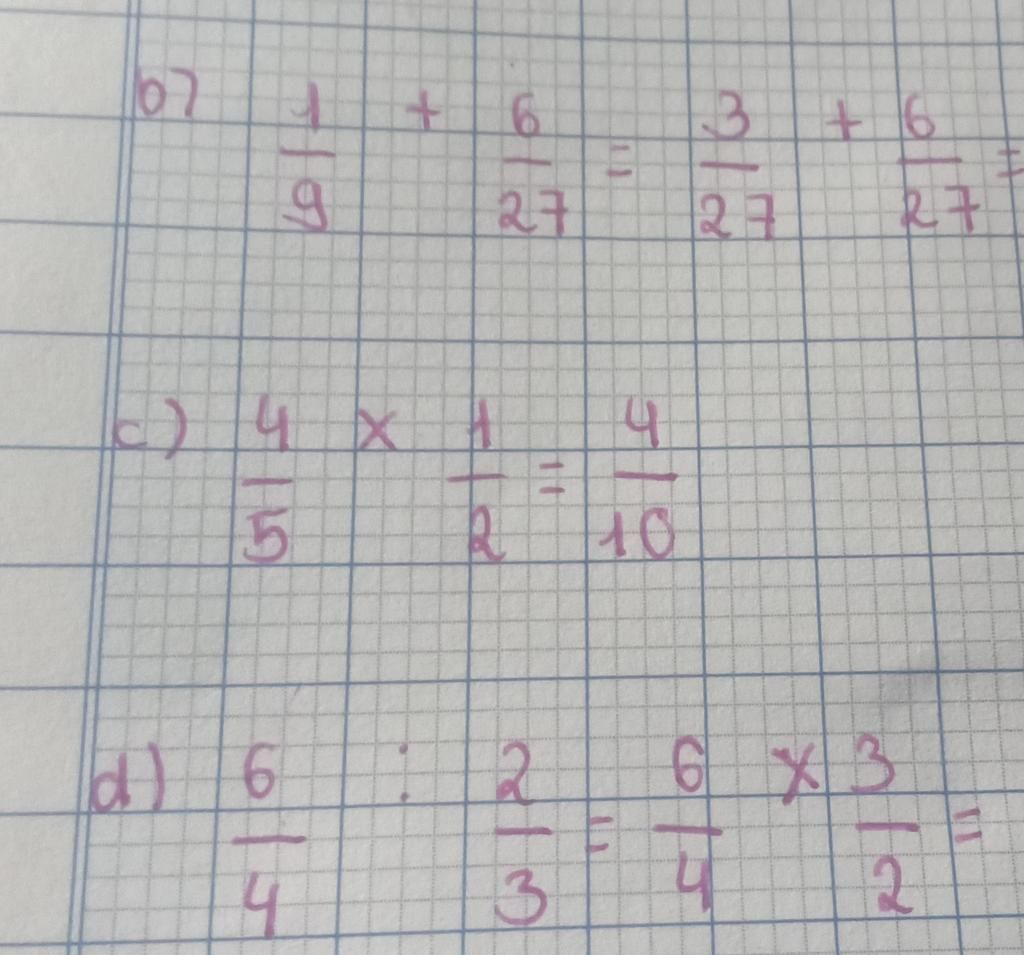 b) 1/9 + 6/27 = 3/27 + 6/27 =
c) 4/5 x 1/2 = 4/10
d) 6/4 : 2/3 = 6/4 x 3/2 =